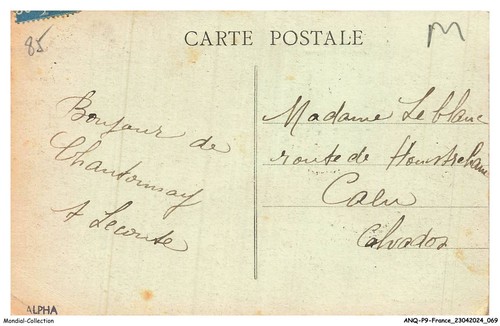 85
M
CARTE POSTALE
Bonjour de
Chantonnay
A Lecoute
Madame Leblanc
route de Houistreham
Caen
Calvados
ALPHA
Mondial-Collection
ANQ-P9-France_23042024_069